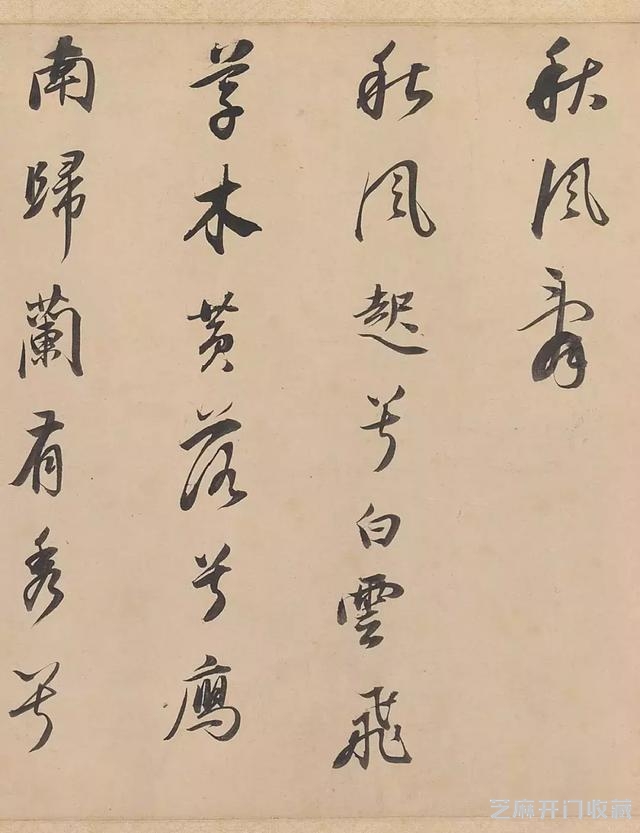 秋风辞
秋风起兮白雲飛
草木黄落兮鴈
南歸蘭有秀兮
芝麻开门收藏